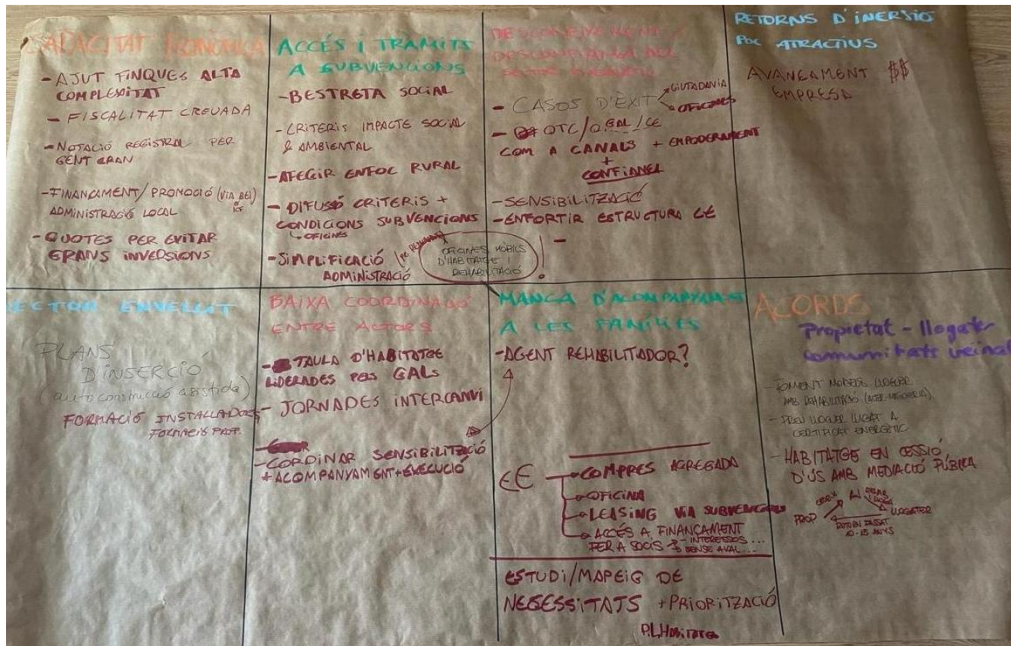 CAPACITAT ECONÒMICA
- AJUT FINQUES ALTA
COMPLEXITAT
- FISCALITAT CREUADA
- NOTACIÓ REGISTRAL PER
GENT GRAN
- FINANÇAMENT/PROMOCIÓ (VIA BEI)
ICF
ADMINISTRACIÓ LOCAL
- QUOTES PER EVITAR
GRANS INVERSIONS
ACCÉS I TRAMITS
A SUBVENCIONS
- BESTRETA SOCIAL
- CRITERIS IMPACTE SOCIAL
& AMBIENTAL
- AFEGIR ENFOC RURAL
- DIFUSIÓ CRITERIS +
CONDICIONS SUBVENCIONS
OFICINES
- SIMPLIFICACIÓ
ADMINISTRACIÓ
OFICINES MÒBILS
D'HABITATGE I
REHABILITACIÓ
!
DESCONEIXEMENT /
DESCONFIANÇA DEL
SECTOR
- CASOS D'ÈXIT
CIUTADANIA
OFICINES
- OTC/GAL/CE
COM A CANALS + EMPODERAMENT
+
CONFIANÇA
- SENSIBILITZACIÓ
- ENFORTIR ESTRUCTURA CE
-
RETORNS D'INERSIÓ
POC ATRACTIUS
AVANÇAMENT $$
EMPRESA
SECTOR ENVELLIT
PLANS
D'INSERCIÓ
(autoconstrucció assistida)
FORMACIÓ INSTAL·LADORS
FORMACIÓ PROF.
BAIXA COORDINACIÓ
ENTRE ACTORS
- TAULA D'HABITATGE
LIDERADES PELS GALS
- JORNADES INTERCANVI
- CORDINAR SENSIBILITZACIÓ
+ ACOMPANYAMENT + EXECUCIÓ
MANCA D'ACOMPANYAMENT
A LES FAMÍLIES
- AGENT REHABILITADOR?
CE
COMPRES AGREGADA
OFICINA
LEASING VIA SUBVENCIONS
ACCÉS A FINANÇAMENT
PER A SOCIS
- INTERESSOS...
SENSE AVAL...
ESTUDI/MAPEIG DE
NECESSITATS + PRIORITZACIÓ
P.L.Habitatge
ACORDS
Propietat - llogater
Comunitats veïnals
- FOMENT MODELS LLOGUER
AMB REHABILITACIÓ
- PREU LLOGUER LLIGAT A
CERTIFICAT ENERGÈTIC
- HABITATGE EN CESSIÓ
D'ÚS AMB MEDIACIÓ PÚBLICA
PROP
AJ
LLOGATER
10-15 ANYS